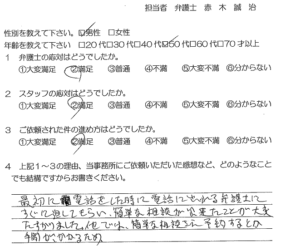 担当者 弁護士 赤木誠治
性別を教えて下さい。☑男性 □女性
年齢を教えて下さい □20代□30代□40代☑50代□60代□70才以上
1 弁護士の応対はどうでしたか。
①大変満足 ②満足 ③普通 ④不満 ⑤大変不満 ⑥分からない
2 スタッフの応対はどうでしたか。
①大変満足 ②満足 ③普通 ④不満 ⑤大変不満 ⑥分からない
3 ご依頼された件の進め方はどうでしたか。
①大変満足 ②満足 ③普通 ④不満 ⑤大変不満 ⑥分からない
4 上記1~3の理由、当事務所にご依頼いただいた感想など、どのようなこと
でも結構ですからお書きください。
最初に電話をした時に電話に出られる弁護士に
すぐに回してもらい、簡単な相談が出来たことが大変
たすかりました。他では、簡単な相談でも予約するとか
手間がかかるため